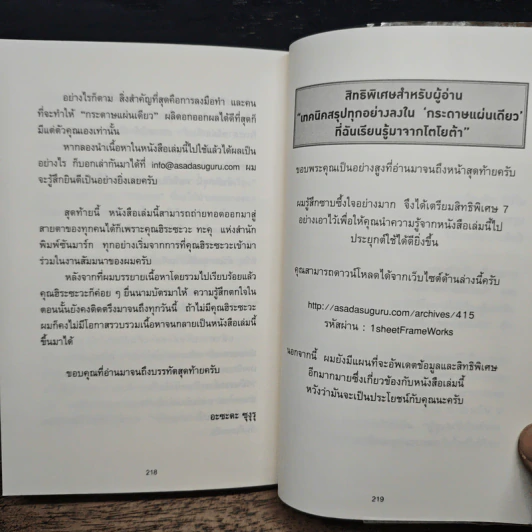 อย่างไรก็ตาม สิ่งสำคัญที่สุดคือการลงมือทำ และคน
ที่จะทำให้ "กระดาษแผ่นเดียว" ผลิดอกออกผลได้ดีที่สุดก็
มีแต่ตัวคุณเองเท่านั้น
หากลองนำเนื้อหาในหนังสือเล่มนี้ไปใช้แล้วได้ผลเป็น
อย่างไร ก็บอกเล่ากันมาได้ที่ info@asadasuguru.com ผม
จะรู้สึกยินดีเป็นอย่างยิ่งเลยครับ
สุดท้ายนี้ หนังสือเล่มนี้สามารถถ่ายทอดออกมาสู่
สายตาของทุกคนได้ก็เพราะคุณฮิระซะวะ ทะคุ แห่งสำนัก
พิมพ์ซันมาร์ก ทุกอย่างเริ่มจากการที่คุณฮิระซะวะเข้ามา
ร่วมในงานสัมมนาของผมครับ
หลังจากที่ผมบรรยายเนื้อหาโดยรวมไปเรียบร้อยแล้ว
คุณฮิระซะวะก็ค่อย ๆ ยื่นนามบัตรมาให้ ความรู้สึกตกใจใน
ตอนนั้นยังคงติดตรึงมาจนถึงทุกวันนี้ ถ้าไม่มีคุณฮิระซะวะ
ผมก็คงไม่มีโอกาสรวบรวมเนื้อหาจนกลายเป็นหนังสือเล่มนี้
ขึ้นมาได้
ขอบคุณที่อ่านมาจนถึงบรรทัดสุดท้ายครับ
อะซะดะ ซุงุรุ
218
สิทธิพิเศษสำหรับผู้อ่าน
"เทคนิคสรุปทุกอย่างลงใน 'กระดาษแผ่นเดียว'
ที่ฉันเรียนรู้มาจากโตโยต้า"
ขอบพระคุณเป็นอย่างสูงที่อ่านมาจนถึงหน้าสุดท้ายครับ
ผมรู้สึกซาบซึ้งใจอย่างมาก จึงได้เตรียมสิทธิพิเศษ 7
อย่างเอาไว้เพื่อให้คุณนำความรู้จากหนังสือเล่มนี้ไป
ประยุกต์ใช้ได้ดียิ่งขึ้น
คุณสามารถดาวน์โหลดได้จากเว็บไซต์ด้านล่างนี้ครับ
http://asadasuguru.com/archives/415
รหัสผ่าน : 1sheetFrameWorks
นอกจากนี้ ผมยังมีแผนที่จะอัพเดตข้อมูลและสิทธิพิเศษ
อีกมากมายซึ่งเกี่ยวข้องกับหนังสือเล่มนี้
หวังว่ามันจะเป็นประโยชน์กับคุณนะครับ
219